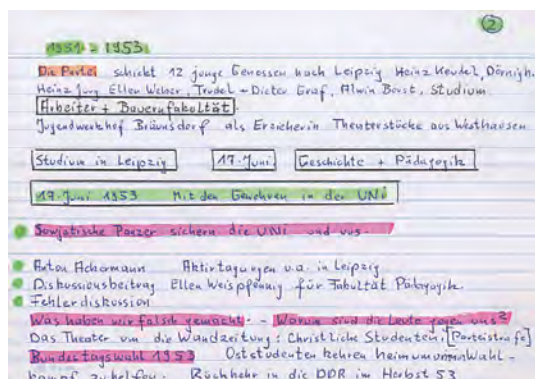 2
1951 - 1953
Die Partei schickt 12 junge Genossen nach Leipzig Heinz Keudel, Dörnigh.
Heinz Jung Ellen Weber, Trudel - Dieter Graf, Alwin Borst, Studium
Arbeiter + Bauernfakultät.
Jugendwerkhof Bräunsdorf als Erzieherin Theaterstücke aus Westhausen
Studium in Leipzig 17. Juni Geschichte + Pädagogik
17. Juni 1953 Mit den Gewehren in der UNi
Sowjetische Panzer sichern die UNi und uns.
Anton Ackermann Aktivtagungen u.a. in Leipzig
Diskussionsbeitrag Ellen Weispfennig für Fakultät Pädagogik.
Fehlerdiskussion
Was haben wir falsch gemacht - - Warum sind die Leute gegen uns?
Das Theater um die Wandzeitung: Christliche Studenten, [Parteistrafe]
Bundestagswahl 1953 Oststudenten kehren heim um im Wahl-
kampf zu helfen. Rückkehr in die DDR im Herbst 53